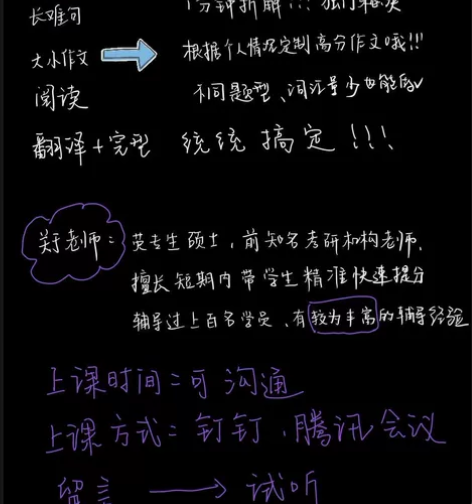 长难句
1分钟拆解!!!
大小作文 根据个人情况定制高分作文哦!!!
阅读 不同题型、词汇量少也能做
翻译+完型 统统搞定!!!
关于老师: 英专生硕士,前知名考研机构老师,
擅长短期内带学生精准快速提分
辅导过上百名学员、有较为丰富的辅导经验
上课时间:可沟通
上课方式:钉钉,腾讯会议
留言 试听